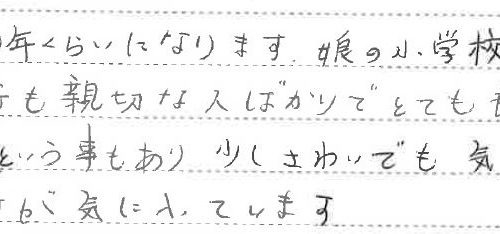 年くらいになります. 娘の小学校
も親切な人ばかりでとても
という事もあり 少しさわいでも 気
が気に入っています